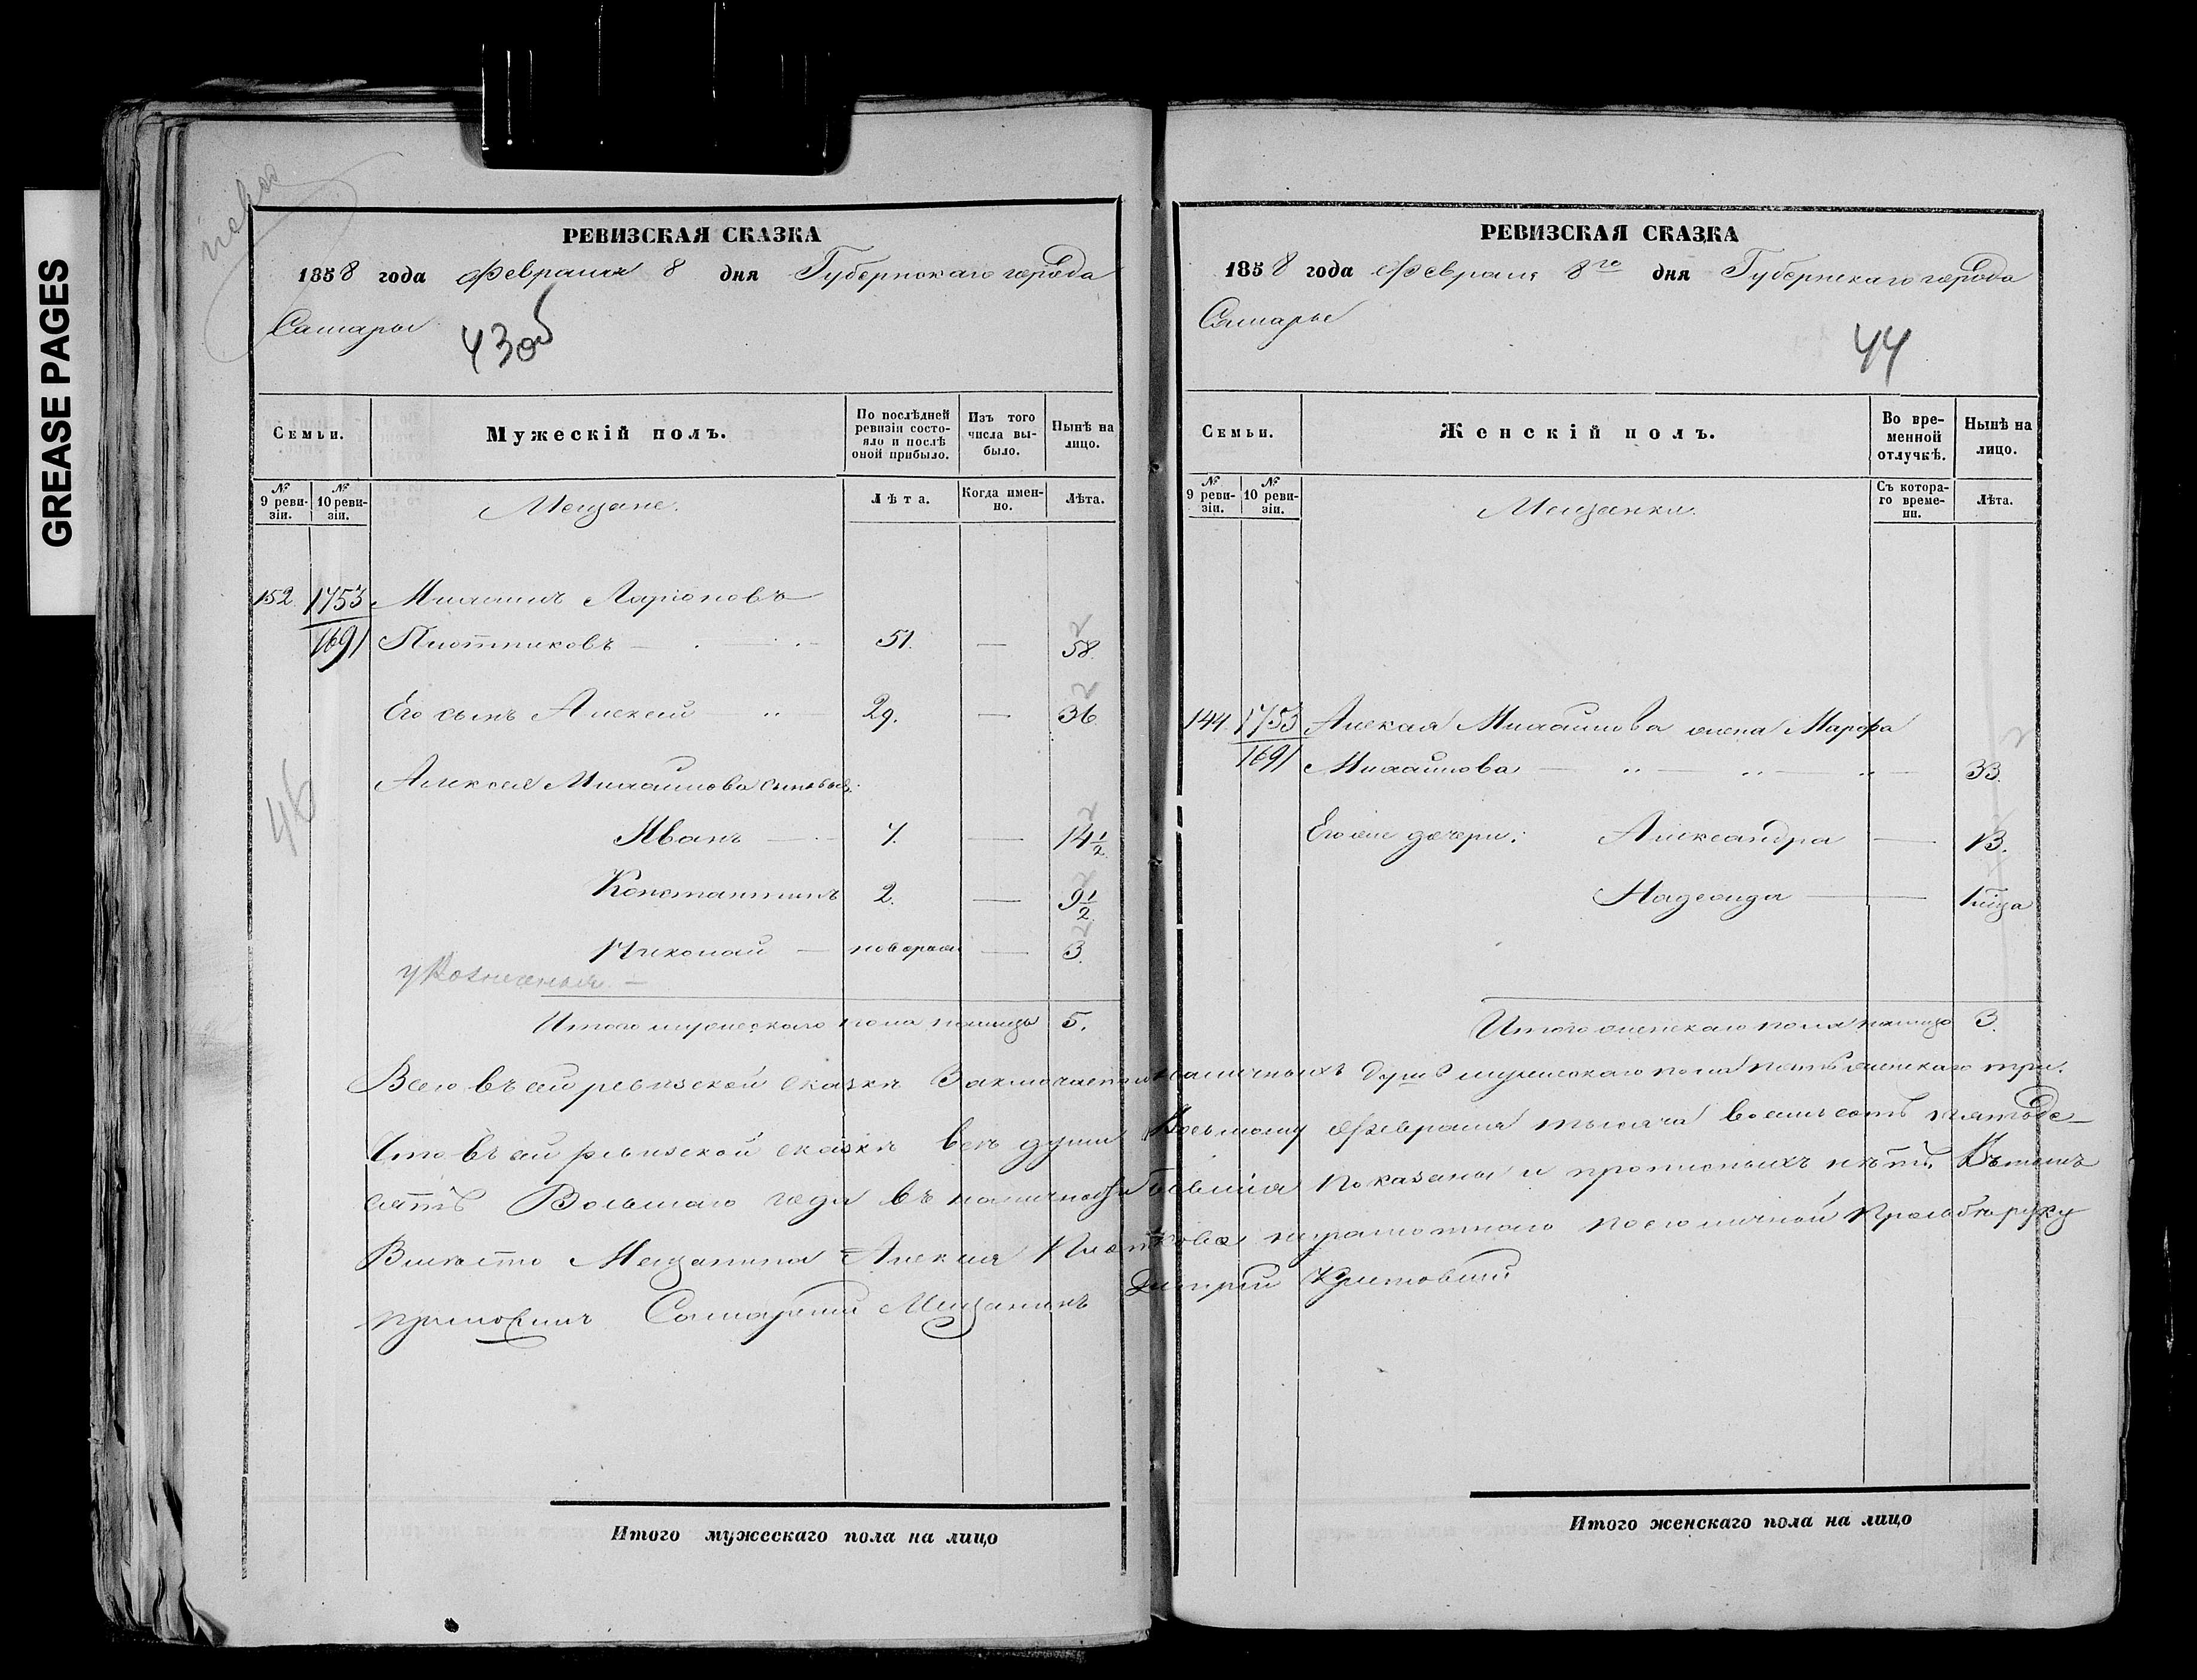 GREASE PAGES
РЕВИЗСКАЯ СКАЗКА
1858 года Февраля 8 дня Губернскаго города
Самары
43об
Семьи.
Мужескій полъ.
По послѣдней ревизіи состояло и послѣ оной прибыло.
Изъ того числа выбыло.
Нынѣ на лицо.
№ 9 ревизіи.
№ 10 ревизіи.
Мещане.
Лѣта.
Когда именно.
Лѣта.
152. 1753 Михаилъ Ларіоновъ
1691 Плотниковъ — 51. — 58.
Его сынъ Алексей — 29. — 36
Алексея Михайлова сыновья:
Иванъ — 7. — 14 1/2
Константинъ 2. — 9 1/2
46
Николай — новорож — 3.
Итого мужескаго пола налицо 5.
РЕВИЗСКАЯ СКАЗКА
1858 года Февраля 8го дня Губернскаго города
Самары
44
Семьи.
Женскій полъ.
Во временной отлучкѣ.
Нынѣ на лицо.
№ 9 ревизіи.
№ 10 ревизіи.
Мещанки.
Съ котораго времени.
Лѣта.
144. 1753 Алексея Михайлова жена Марфа
1691 Михайлова — 33.
Его же дочери: Александра — 13.
Надежда — 1 м̃ца
Итого женскаго пола налицо 3.
Всего въ сей ревизской сказкѣ Заключается наличныхъ душъ мужескаго пола пять женскаго три.
Что въ сей ревизской сказкѣ все души Восьмому Февраля тысяча восемь сотъ пятьде-
сятъ Восьмаго года въ наличности бывшія показаны и прописныхъ нѣтъ. Въ томъ
Вместо Мещанина Алексея Плотникова неграмотнаго по его личной прозьбе руку
приложилъ Самарскій Мещанинъ Дмитрій
Итого мужескаго пола на лицо
Итого женскаго пола на лицо